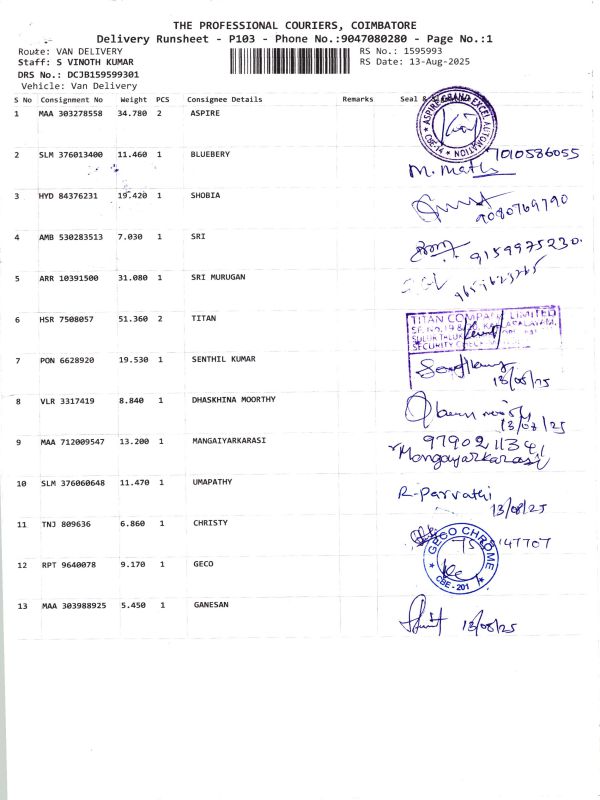 THE PROFESSIONAL COURIERS, COIMBATORE
Delivery Runsheet - P103 - Phone No.:9047080280 - Page No.:1
Route: VAN DELIVERY
RS No.: 1595993
Staff: S VINOTH KUMAR
RS Date: 13-Aug-2025
DRS No.: DCJB159599301
Vehicle: Van Delivery
S No Consignment No Weight PCS Consignee Details Remarks Seal &
1 MAA 303278558 34.780 2 ASPIRE
2 SLM 376013400 11.460 1 BLUEBERY 7010586055
M. Math
3 HYD 84376231 19.420 1 SHOBIA 9080769790
4 AMB 530283513 7.030 1 SRI 9159975230.
5 ARR 10391500 31.080 1 SRI MURUGAN
6 HSR 7508057 51.360 2 TITAN TITAN COMPANY LIMITED
7 PON 6628920 19.530 1 SENTHIL KUMAR
13/08/25
8 VLR 3317419 8.840 1 DHASKHINA MOORTHY
13/08/25
9 MAA 712009547 13.200 1 MANGAIYARKARASI 9790211341
Mangayarkarasi
10 SLM 376060648 11.470 1 UMAPATHY R-Parvathi
13/08/25
11 TNJ 809636 6.860 1 CHRISTY
12 RPT 9640078 9.170 1 GECO GECO CHROME
CBE-201
13 MAA 303988925 5.450 1 GANESAN 13/08/25